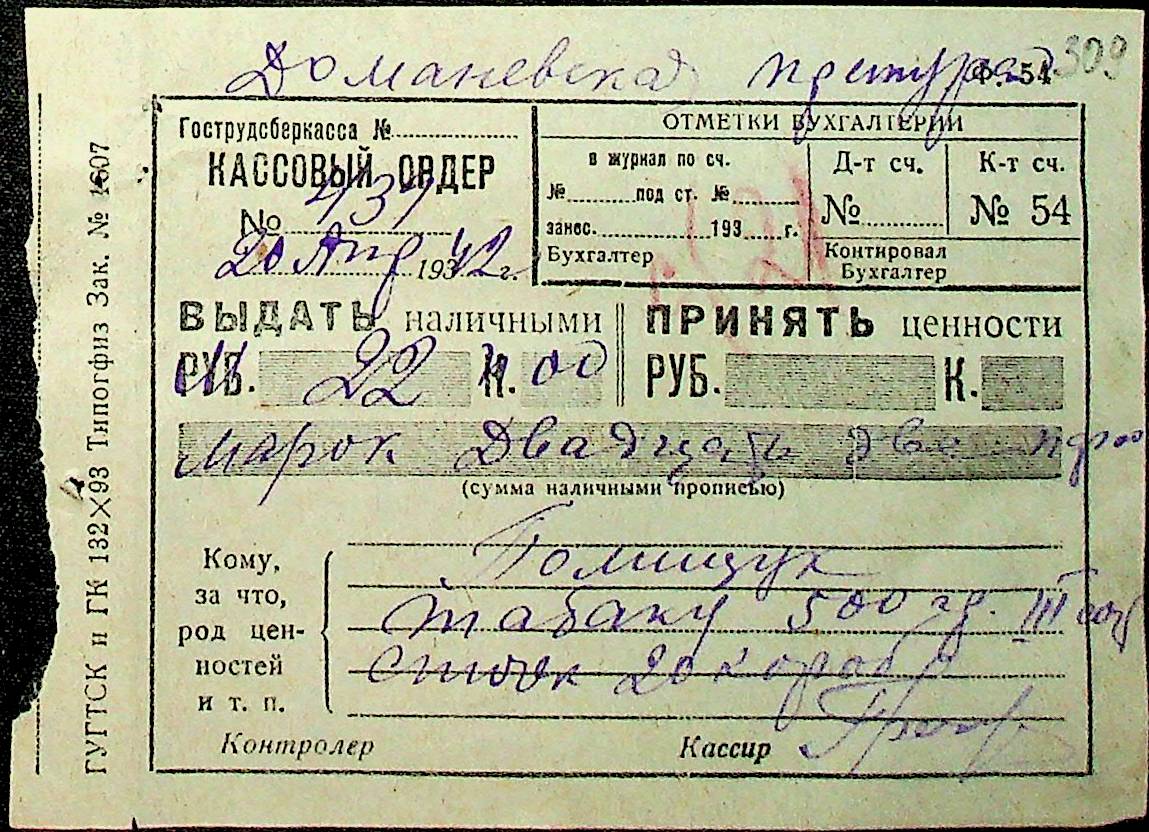 Доманевска претура Ф. 54 309
Гострудсберкасса №
КАССОВЫЙ ОРДЕР
№ 431
20 Апр 1942 г.
ОТМЕТКИ БУХГАЛТЕРИИ
в журнал по сч.
№ под ст. №
занес. 193 г.
Бухгалтер
Д-т сч.
№
К-т сч.
№ 54
Контировал
Бухгалтер
ВЫДАТЬ наличными
РУБ. 22 К. 00
ПРИНЯТЬ ценности
РУБ. К.
марок Двадцать две
(сумма наличными прописью)
Кому,
за что,
род цен-
ностей
и т. п.
Полищук
табаку 500 гр. III сор
спичек 20 короб
Контролер
Кассир
ГУГТСК и ГК 132×93 Типогфиз Зак. № 1607